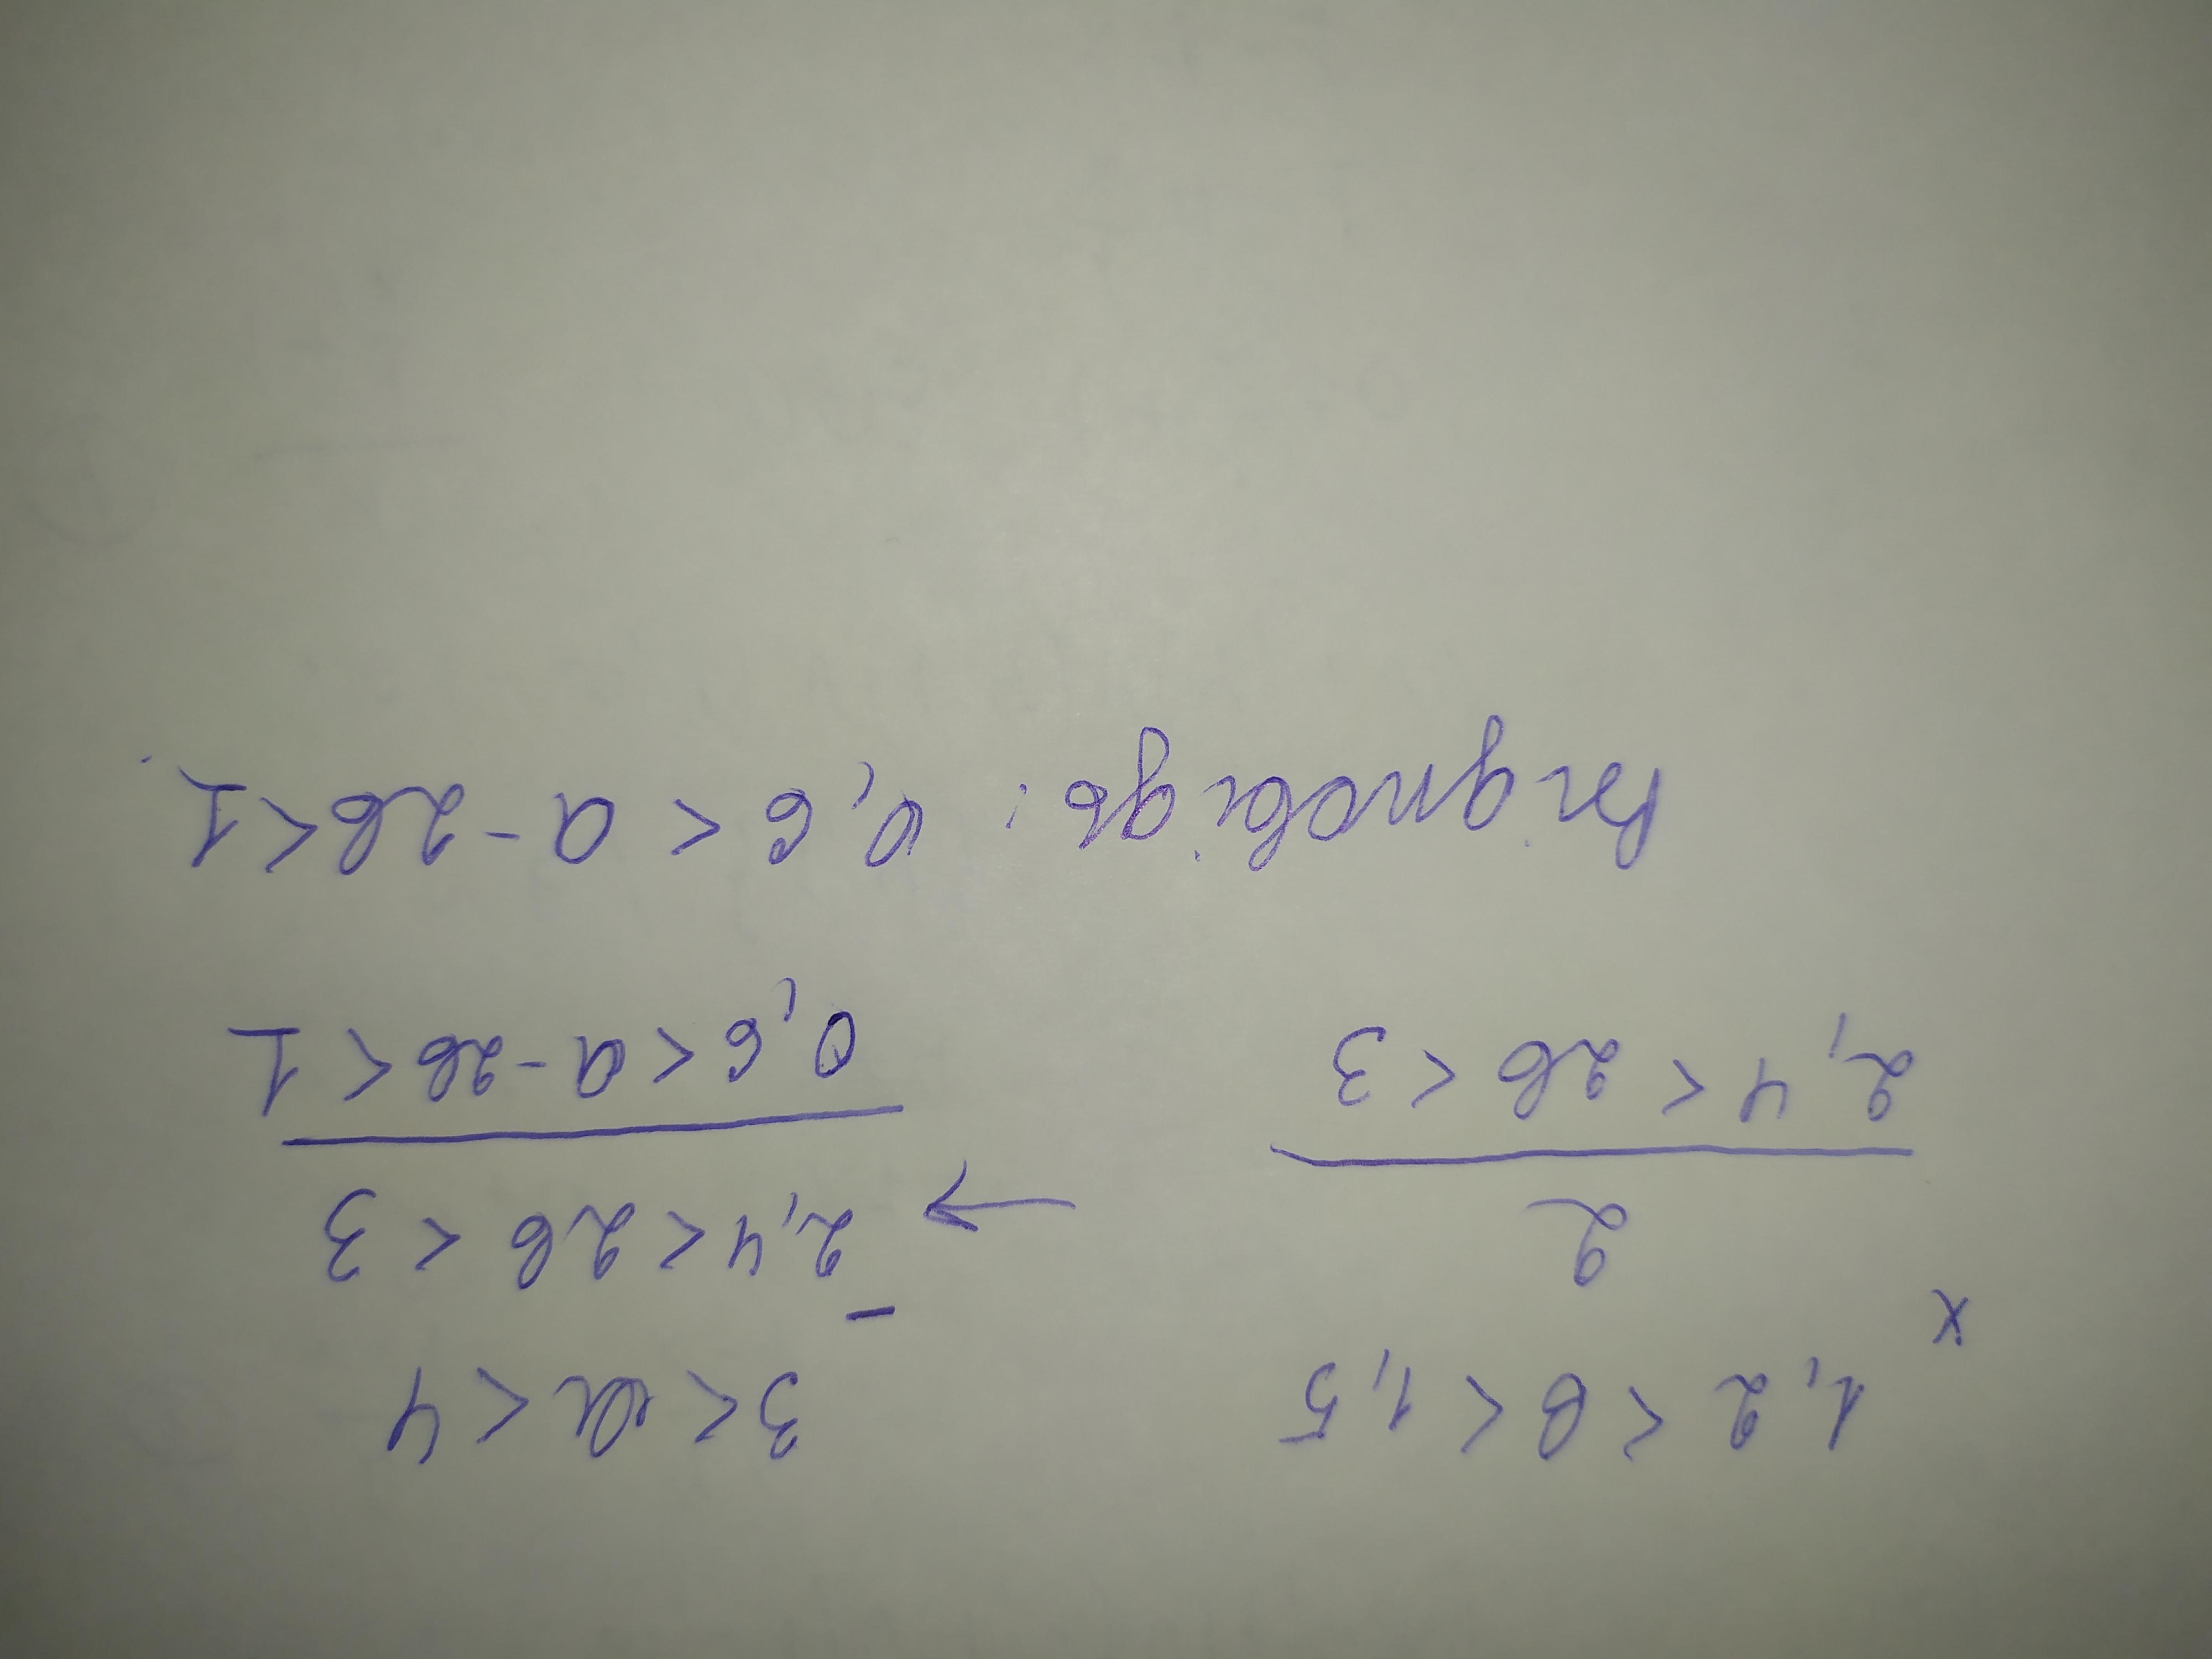 1,2 < в < 1,5
x
2
2,4 < 2в < 3
→
3 < a < 4
-
2,4 < 2в < 3
0,6 < a - 2в < 1
Відповідь: 0,6 < a - 2в < 1.